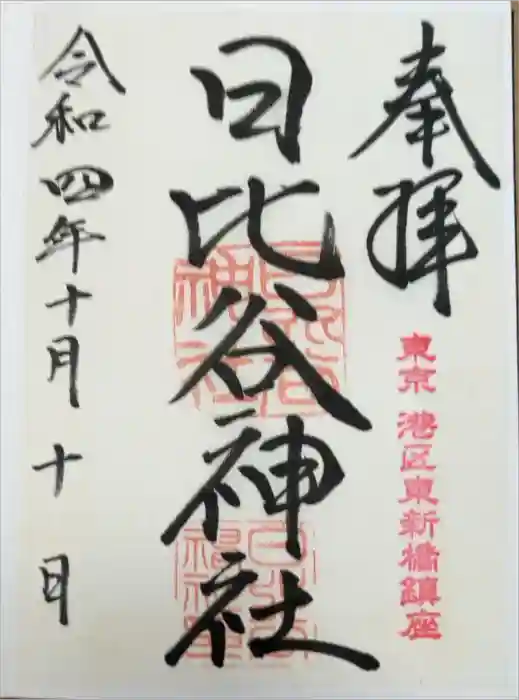 奉拝
東京 港区東新橋鎮座
日比谷神社
令和四年十月十日